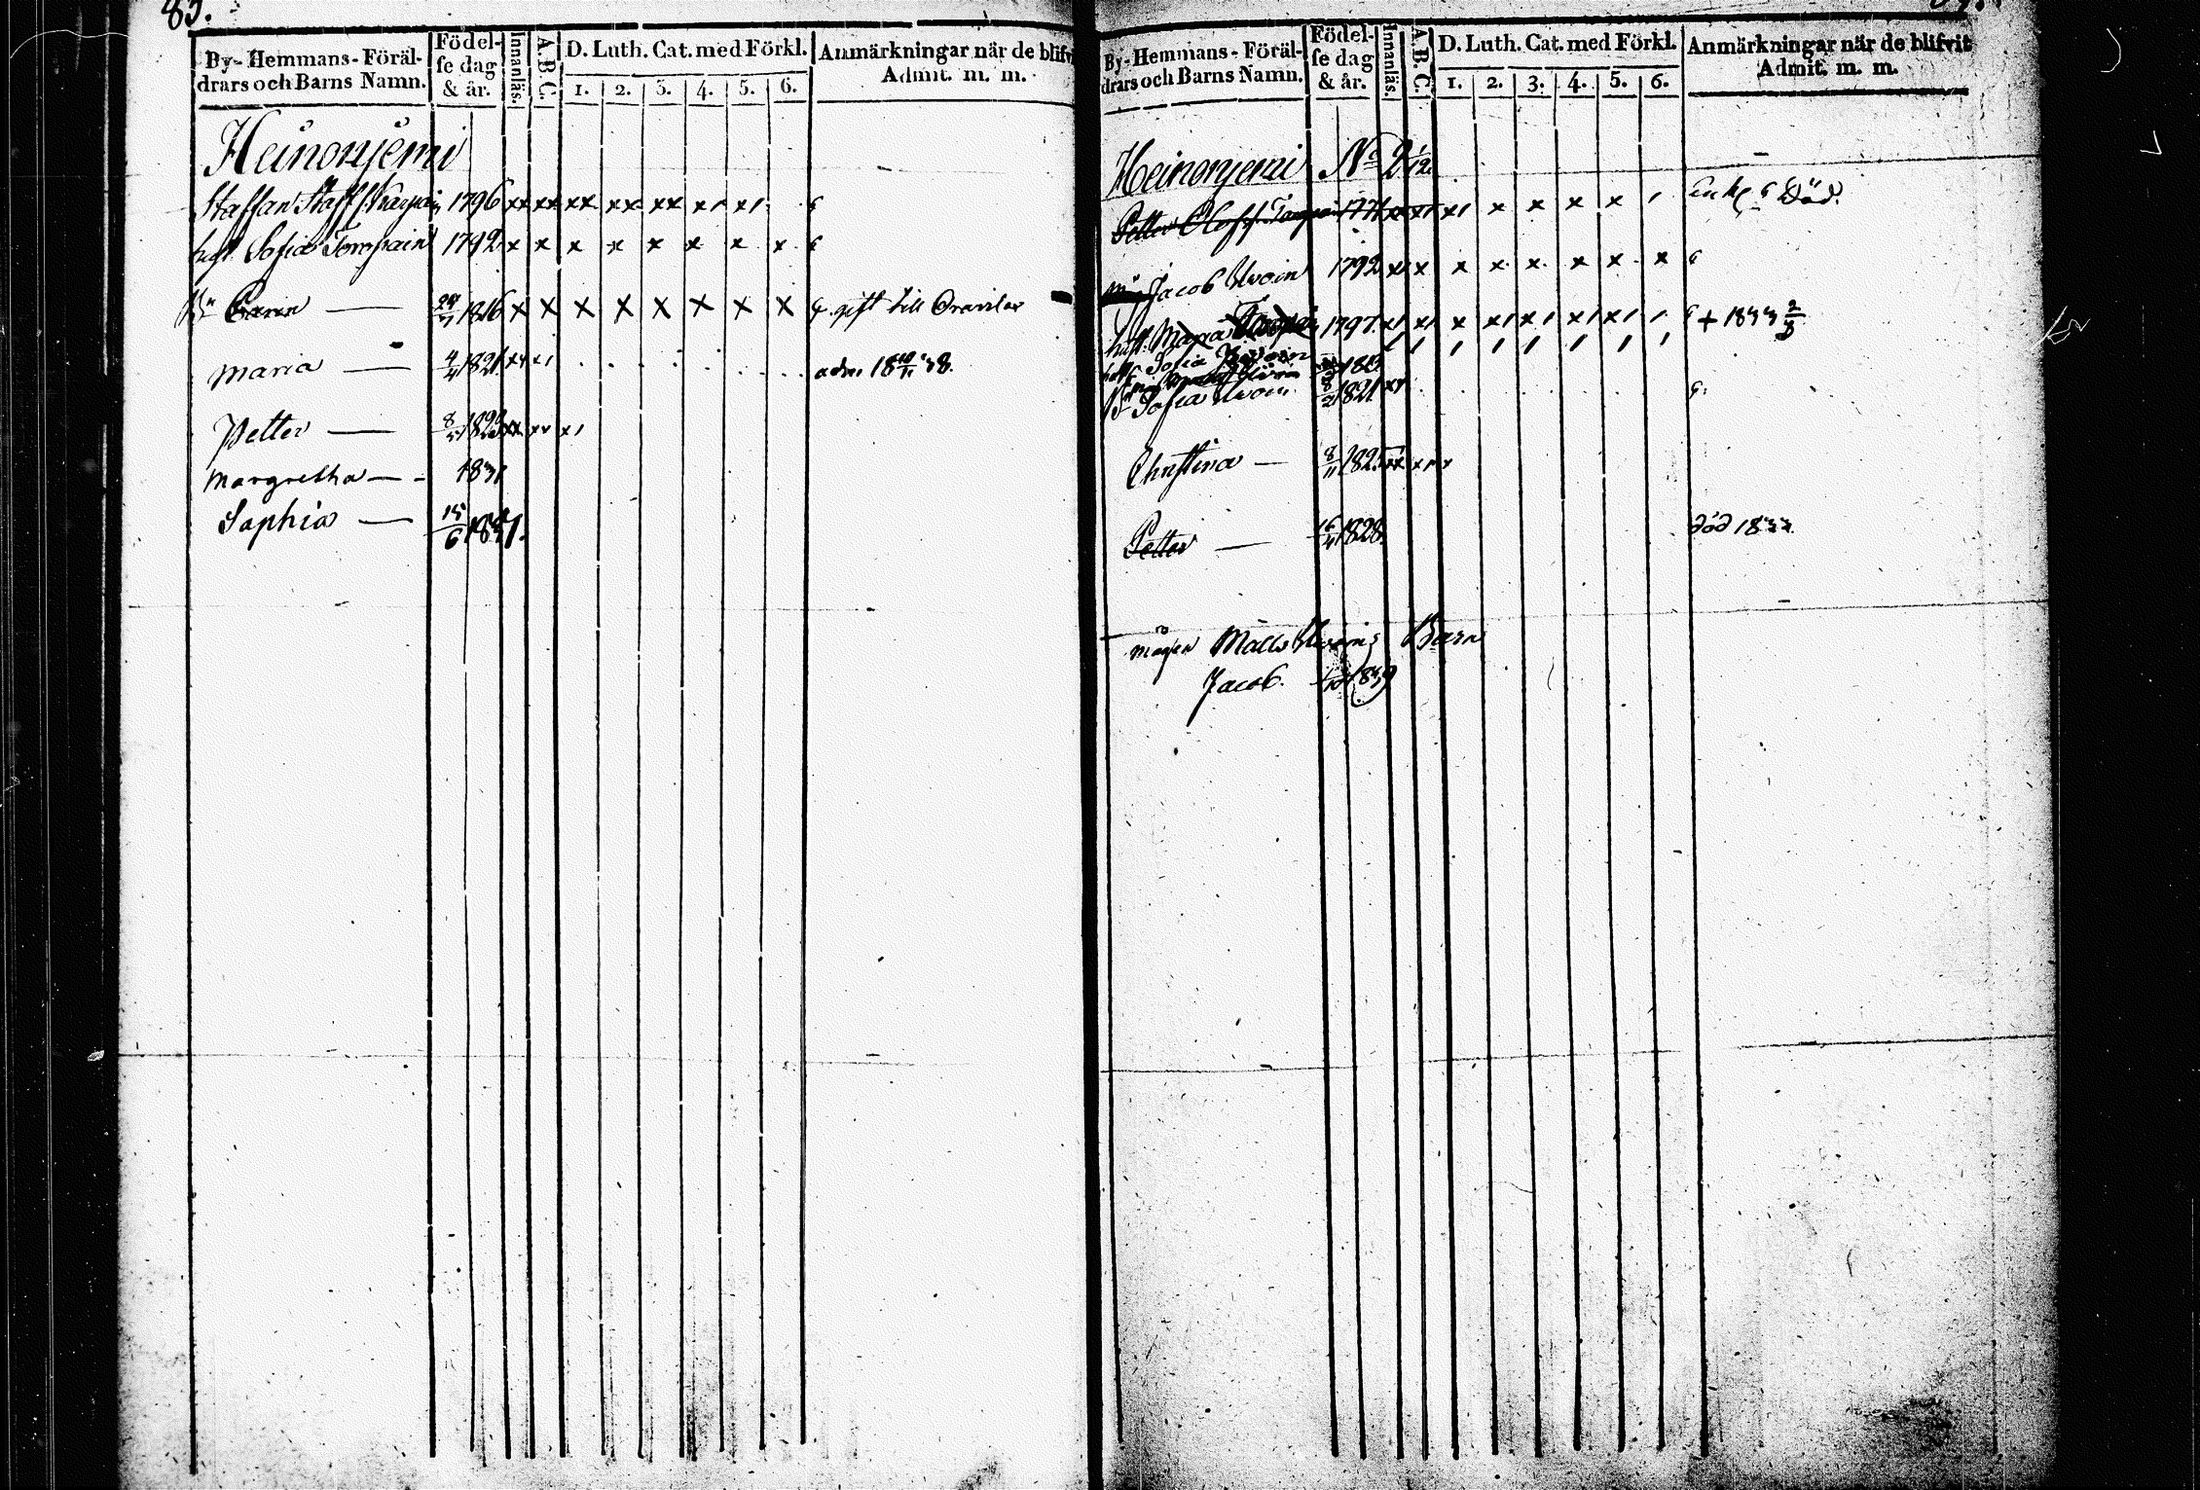 83.
By- Hemmans- Föräl-
drars och Barns Namn.
Födel-
se dag
& år.
Innanläs.
A.B.C.
D. Luth. Cat. med Förkl.
1. 2. 3. 4. 5. 6.
Anmärkningar när de blifvi
Admit. m. m.
Heinonjemi
Staffan Staff 1796 xx xx xx xx xx x1 x1
hust. Sofia Torvpain 1792 x x x x x x x x
Bn Carin — 1816 x x x x x x x x gift till
Maria — 4/4 1821 xx x1 adm. 18 38.
Petter — 8/5 1823 xx xx x1
Margretha — 1831
Saphia — 15/6 1841.
By- Hemmans- Föräl-
drars och Barns Namn.
Födel-
se dag
& år.
Innanläs.
A.B.C.
D. Luth. Cat. med Förkl.
1. 2. 3. 4. 5. 6.
Anmärkningar när de blifvit
Admit. m. m.
Heinonjemi No 2 1/12.
Petter Olofss. 1771 x1 x x x x 1 Enkl Död.
Jacob Uvoin 1792 x x x x x x x
hust. Maria 1797. x1 x1 x x1 x1 x1 x1 1 + 1833
Sofia 1813
Bn Sofia Uvoin 1821 xx
Christina — 8/11 1825 xx
Petter — 16/4 1828. död 1833.
mågen Matts Uvoins Barn
Jacob. 1839